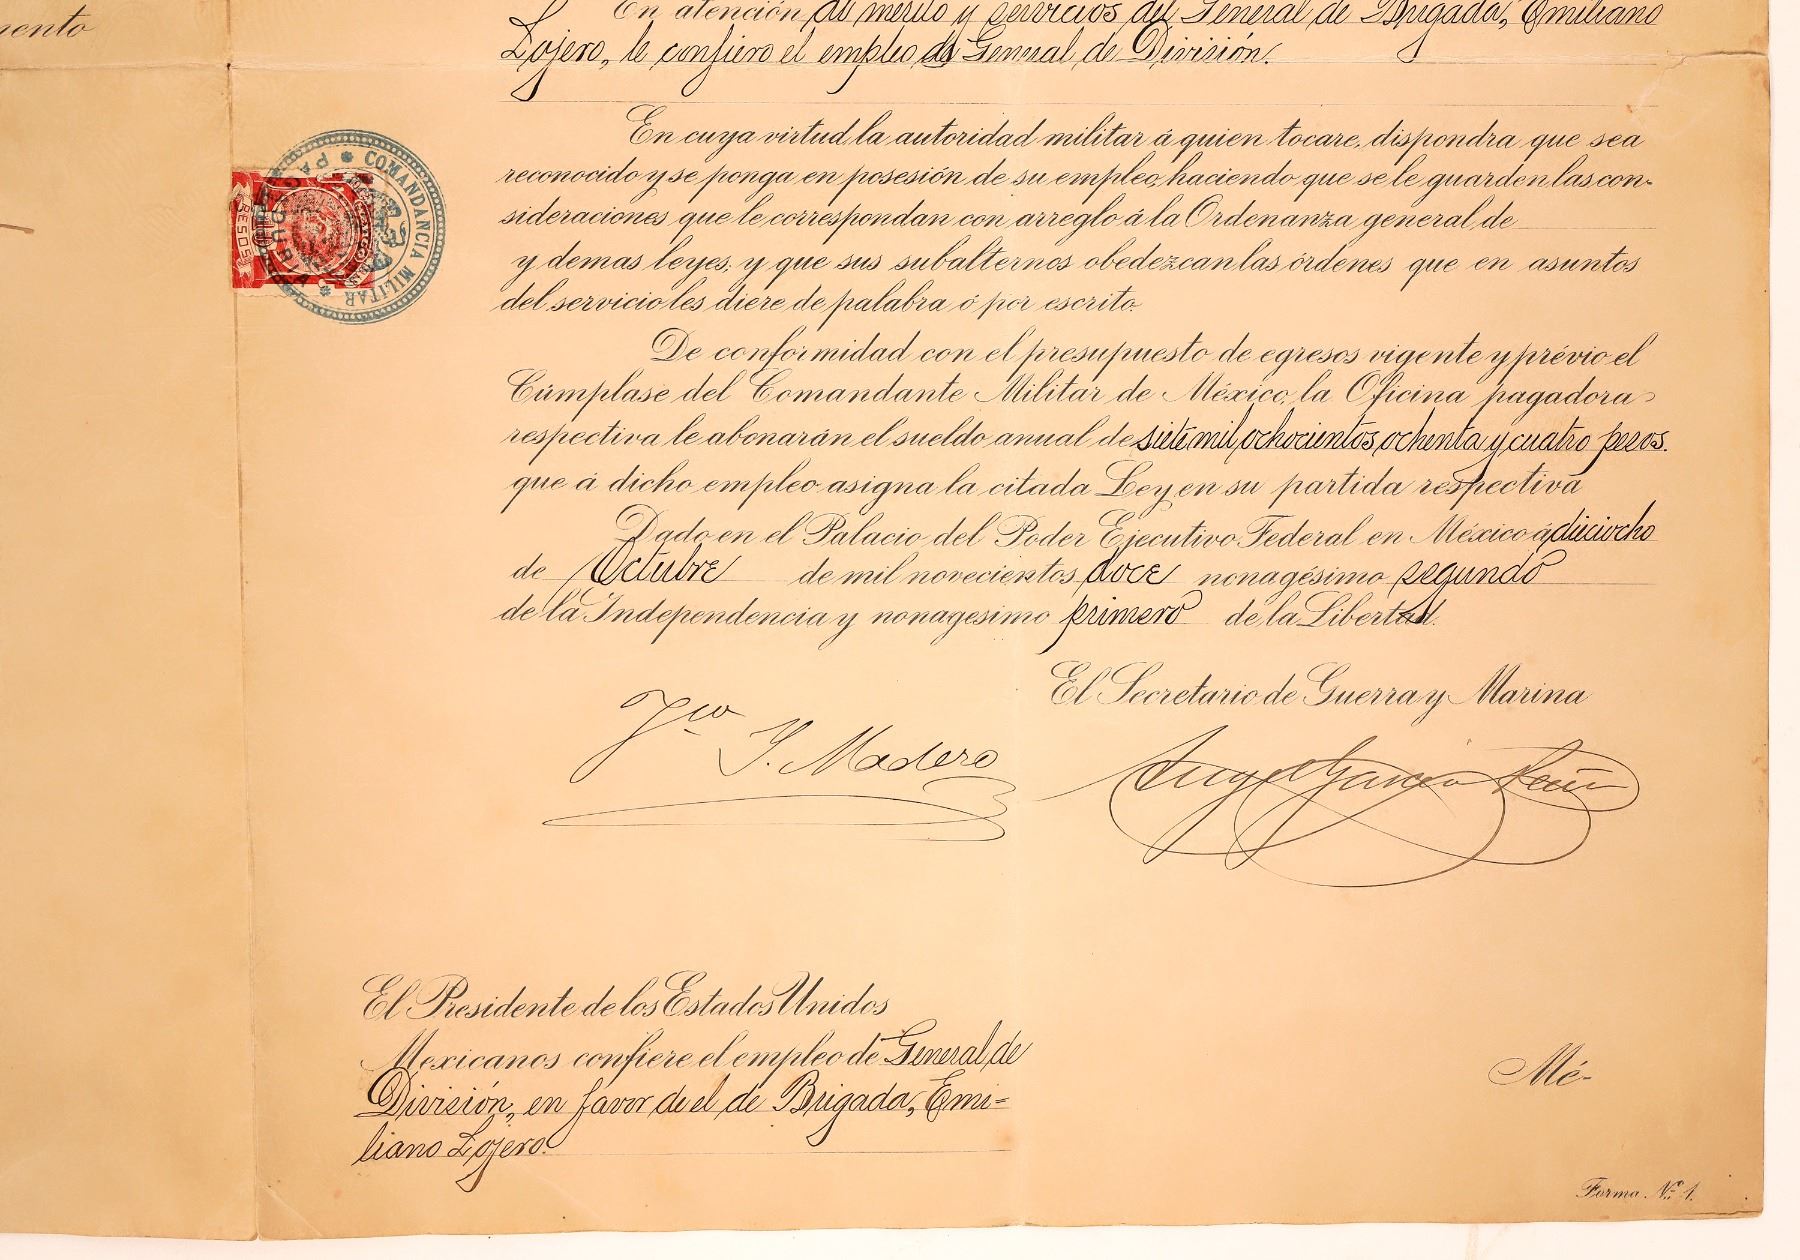 mento
En atención al mérito y servicios del General de Brigada, Emiliano
Lojero, le confiero el empleo de General de División.
En cuya virtud, la autoridad militar á quien tocare, dispondra que sea
reconocido y se ponga en posesión de su empleo, haciendo que se le guarden las con-
sideraciones que le correspondan con arreglo á la Ordenanza general de
y demas leyes, y que sus subalternos obedezcan las órdenes que en asuntos
del servicio les diere de palabra ó por escrito.
De conformidad con el presupuesto de egresos vigente y prévio el
Cúmplase del Comandante Militar de México, la Oficina pagadora
respectiva le abonarán el sueldo anual de siete mil ochocientos ochenta y cuatro pesos.
que á dicho empleo asigna la citada Ley en su partida respectiva
Dado en el Palacio del Poder Ejecutivo Federal en México á dieciocho
de Octubre de mil novecientos doce nonagésimo segundo
de la Independencia y nonagesimo primero de la Libertad.
El Secretario de Guerra y Marina
Fco I. Madero
Angel García Peña
COMANDANCIA MILITAR
PESOS
El Presidente de los Estados Unidos
Mexicanos confiere el empleo de General de
División, en favor de el de Brigada, Emi-
liano Lojero.
Mé-
Forma Nº 1.